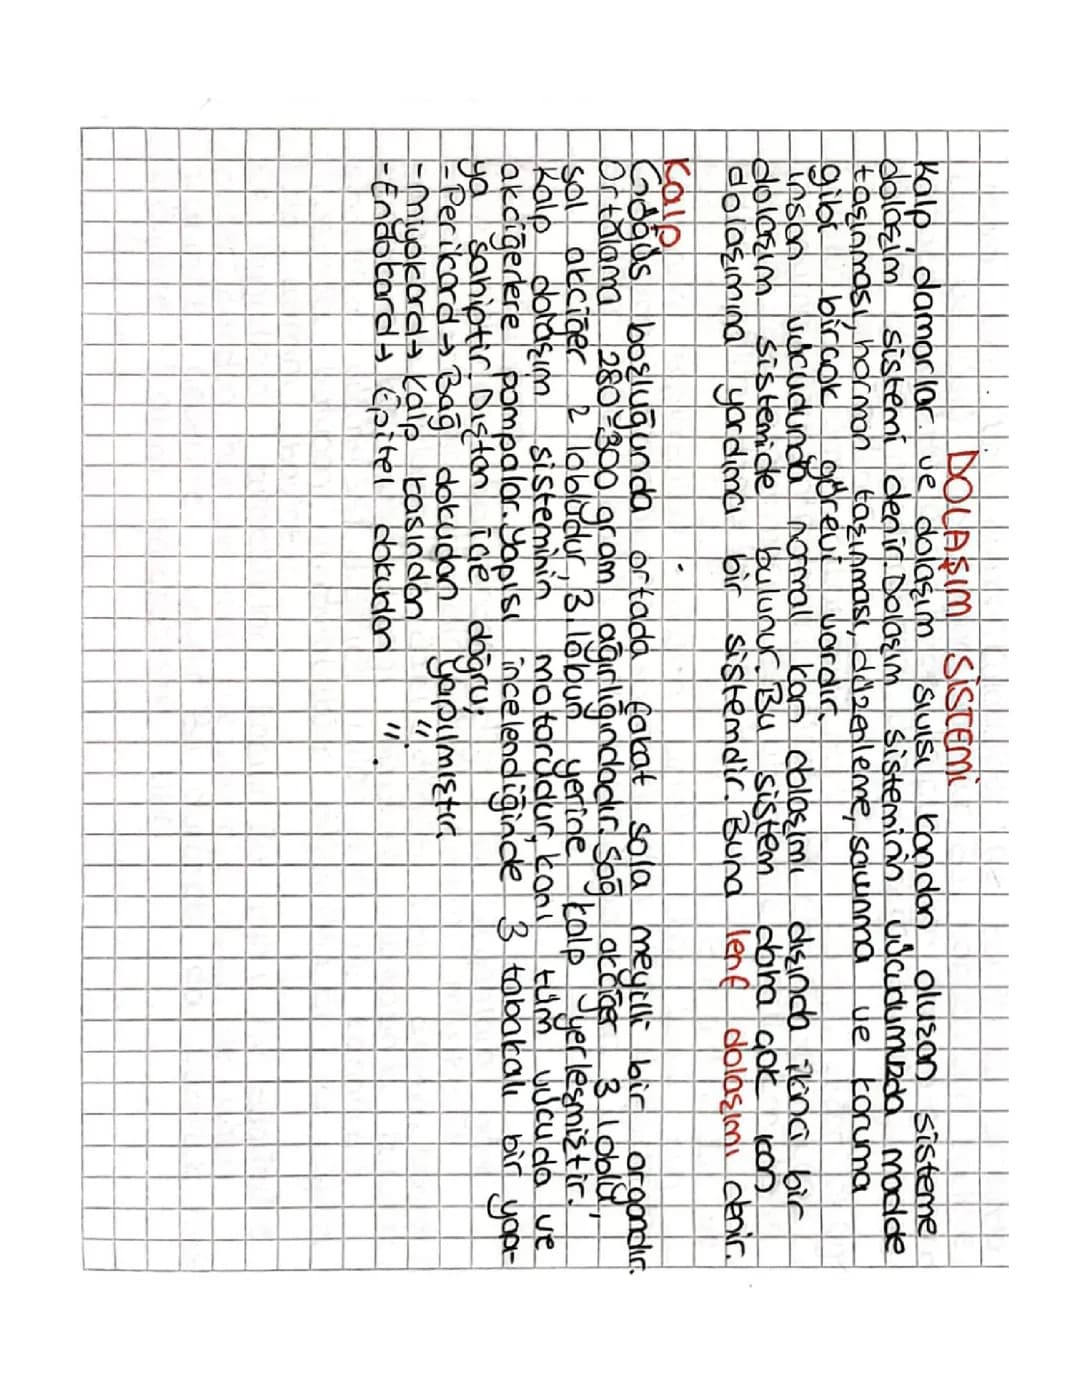 DOLAŞIM SİSTEMİ
Kalp, damarlar ve dolaşım sıvısı kandan oluşan sisteme
dolaşım sistemi denir. Dolaşım sisteminin vücudumuzda madde
taşınması, hormon taşınması, düzenleme, savunma ve koruma
gibi birçok görevi vardır.
İnsan vücudunda normal kan dolaşımı dışında ikinci bir
dolaşım sistemide bulunur. Bu sistem daha çok kan
dolaşımına yardımcı bir sistemdir. Buna lenf dolaşımı denir.
Kalp
Göğüs boşluğunda ortada fakat sola meyilli bir organdır.
Ortalama 280-300 gram ağırlığındadır. Sağ akciğer 3 loblu,
sol akciğer 2 lobludur, 3. lobun yerine kalp yerleşmiştir.
Kalp dolaşım sisteminin motorudur, kanı tüm vücuda ve
akciğerlere pompalar. Yapısı incelendiğinde 3 tabakalı bir yapı-
ya sahiptir. Dıştan içe doğru;
-Perikard→ Bağ dokudan yapılmıştır.
-Miyokard→ Kalp kasından "
-Endokard→ Epitel dokudan " .